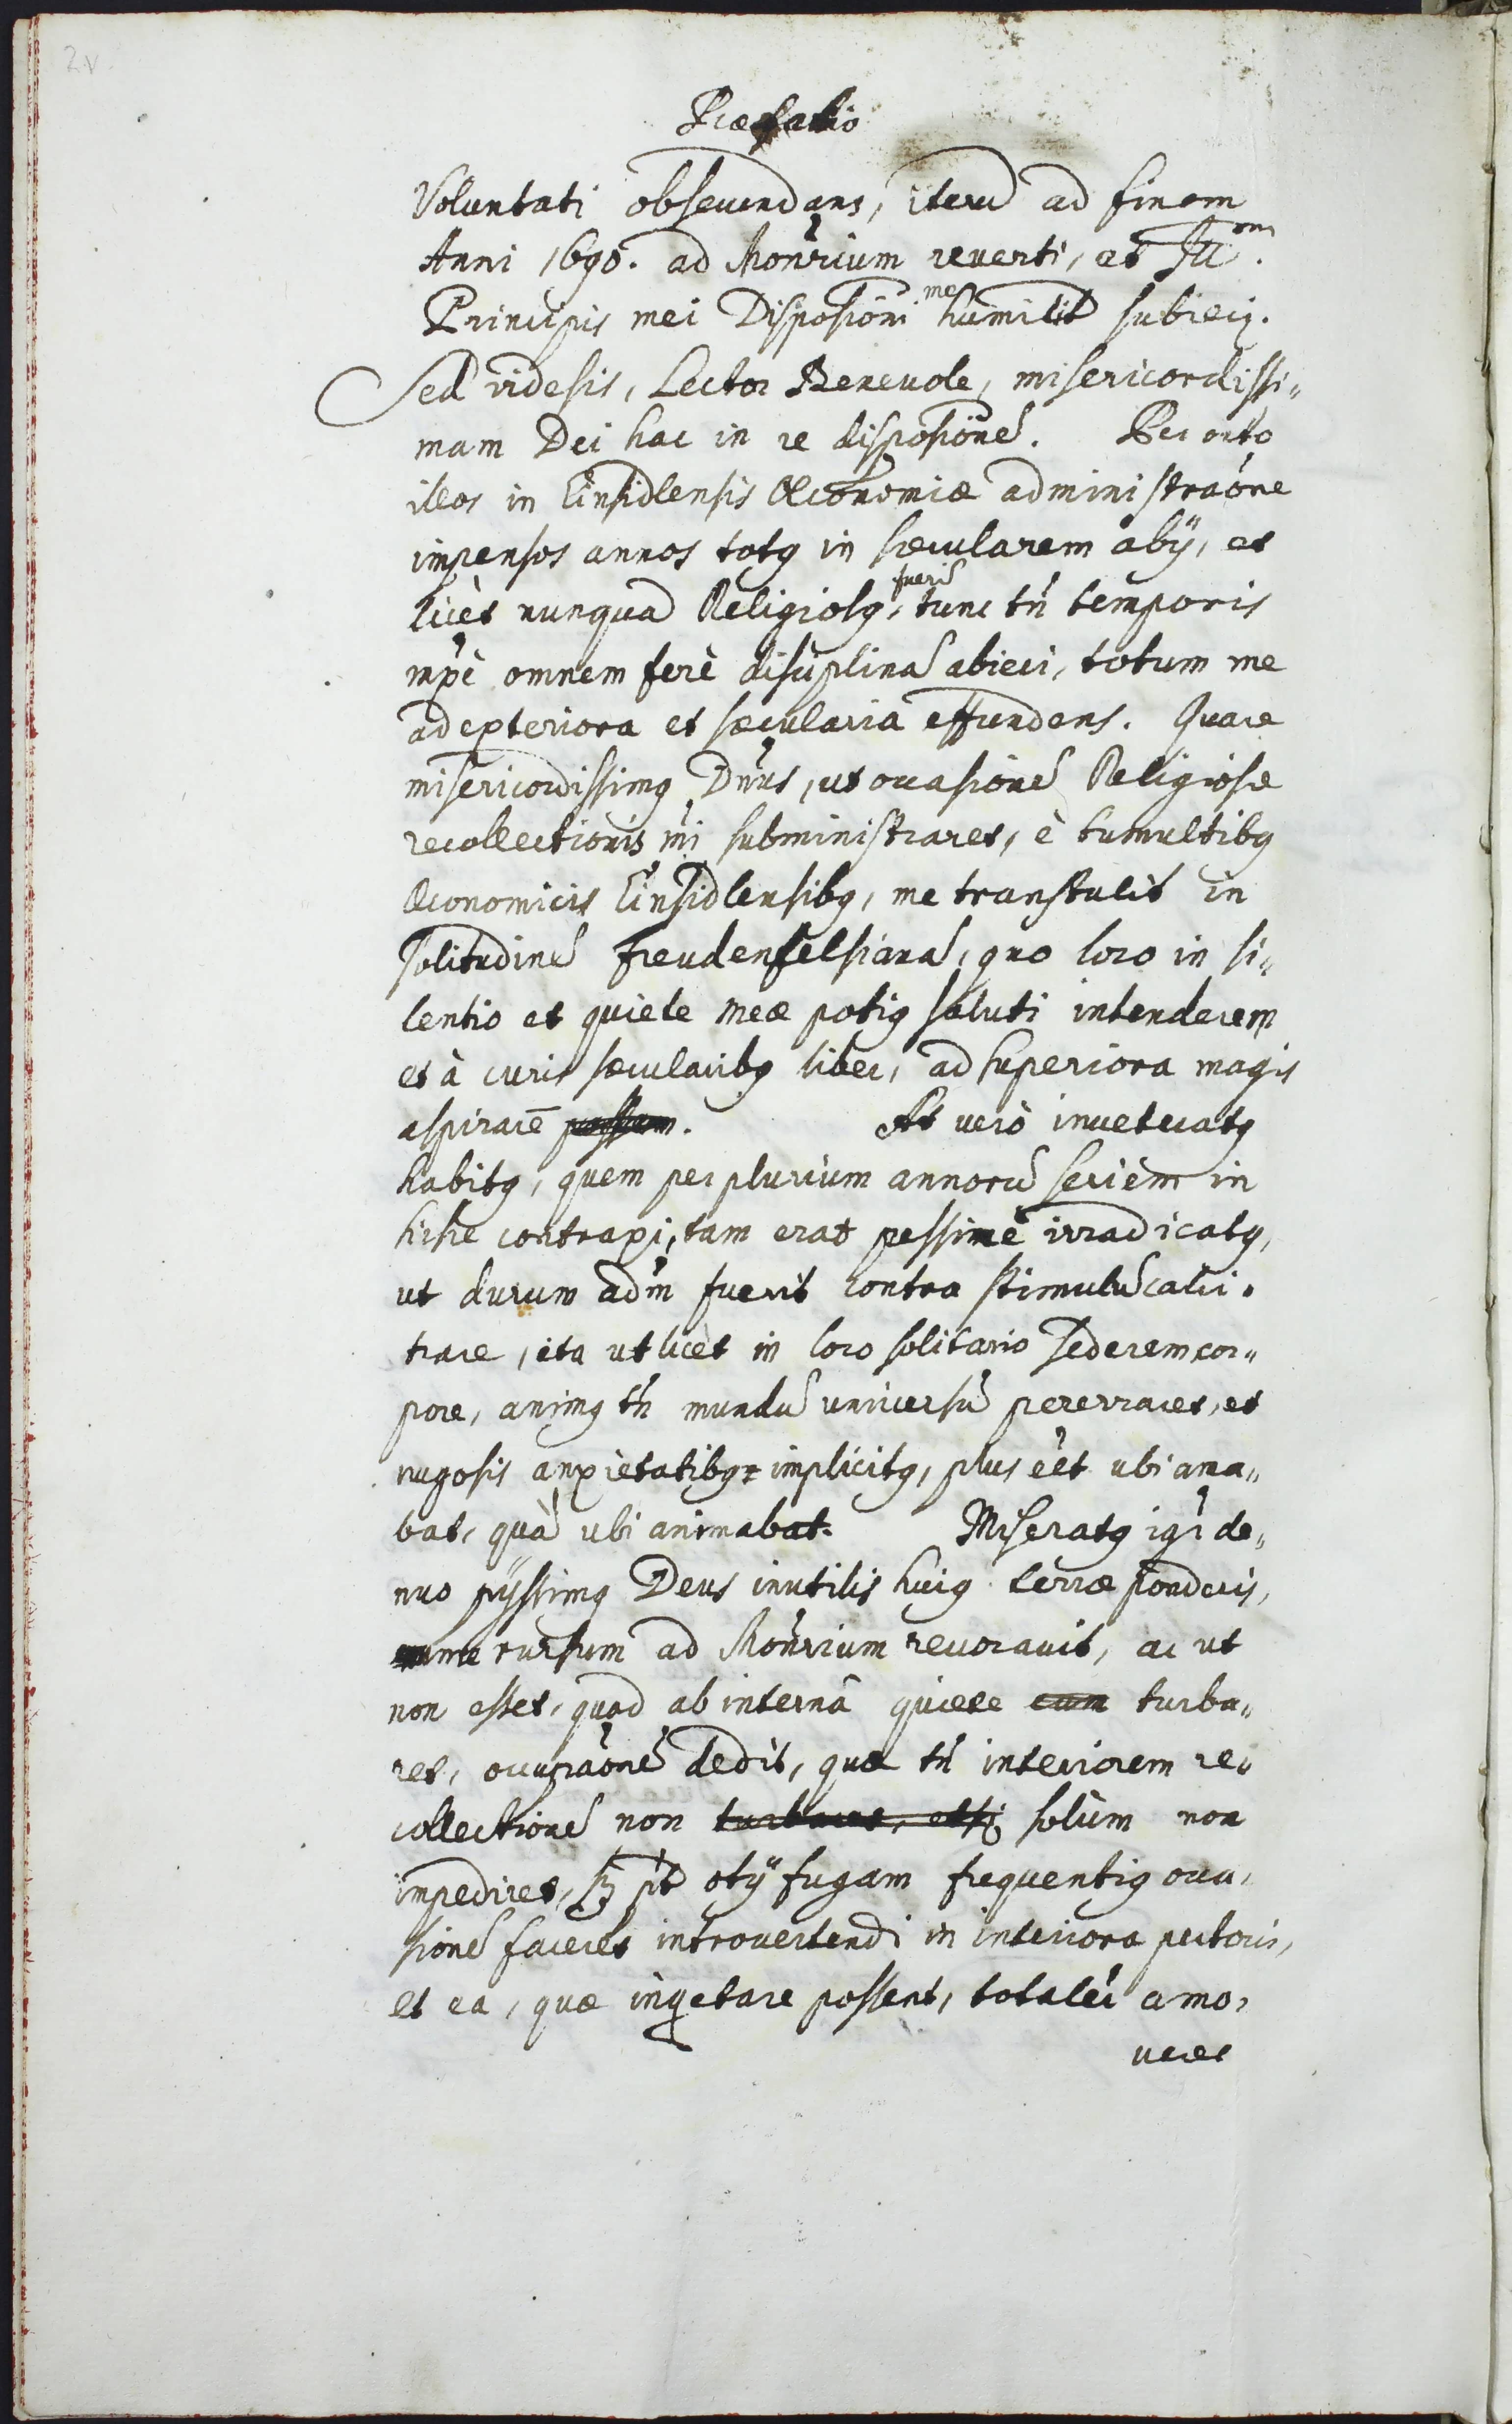 2v.
Præfatio
Voluntati obsecundans, iterũ ad finem
Anni 1695. ad Mon̄rium reverti, et Ill.mi
Principis mei Disposiōni me humilit̃ subieci.
Sed videsis, Lector Benevole, misericordissi„
mam Dei hac in re disposiōnẽ. Per octo
illos in Einsidlensis Œconomiæ administraōne
impensos annos totq in sæcularem abÿ, et
licèt nunquã Religiosq, fuerĩ tunc tñ temporis
mpè omnem ferè disciplinã abieci, totum me
ad exteriora et sæcularia effundens. Quare
misericordissimq Dn̄us, ut occasionẽ Religiosæ
recollectionis m̄i subministraret, è tumultibq
Œconomicis Einsidlensibq, me transtulit in
solitudinẽ freudenfelsianã, quo loco in si„
lentio et quiete meæ potiq saluti intenderem
et à curis sæcularibq liber, ad superiora magis
aspirarē possem. At verò inveteratq
habitq, quem per plurium annorũ seriem in
hisce contraxi, tam erat pessimè irradicatq,
ut durum adm̄ fuerit contra stimulũ calci„
trare, ita ut licèt in loco solitario sederem cor„
pore, animq tñ mundũ universũ pererraret, et
nugosis anxietatibq implicitq, plus eēt ubi ama„
bat, quã ubi animabat. Miseratq igr̄ de„
nuo pÿssimq Deus inutilis huiq terræ ponderis,
me rursum ad Mon̄rium revocavit, ac ut
non esset, quod ab internâ quiete eum turba„
ret, occupaōnẽ dedit, quæ tñ interiorem re„
collectionẽ non turbaret, etsi solùm non
impediret, sȝ pt̃ otÿ fugam frequentiq occa„
sionẽ faceret introvertendi in interiora pectoris,
et ea, quæ inqietare possent, totalēr amo„
veret